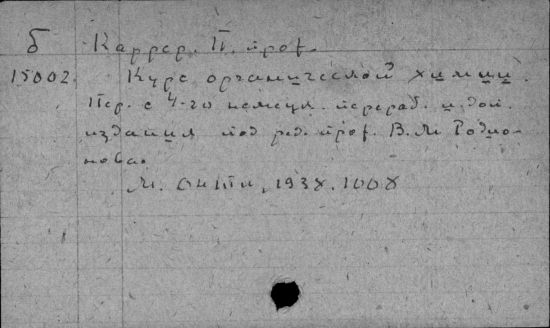 б Каррер. П. проф.
15002. Курс органической химии.
Пер. с 4-го немецк. перераб. и доп.
издания под ред. проф. В. М. Родио-
нова.
М. Онти, 1938. 1008